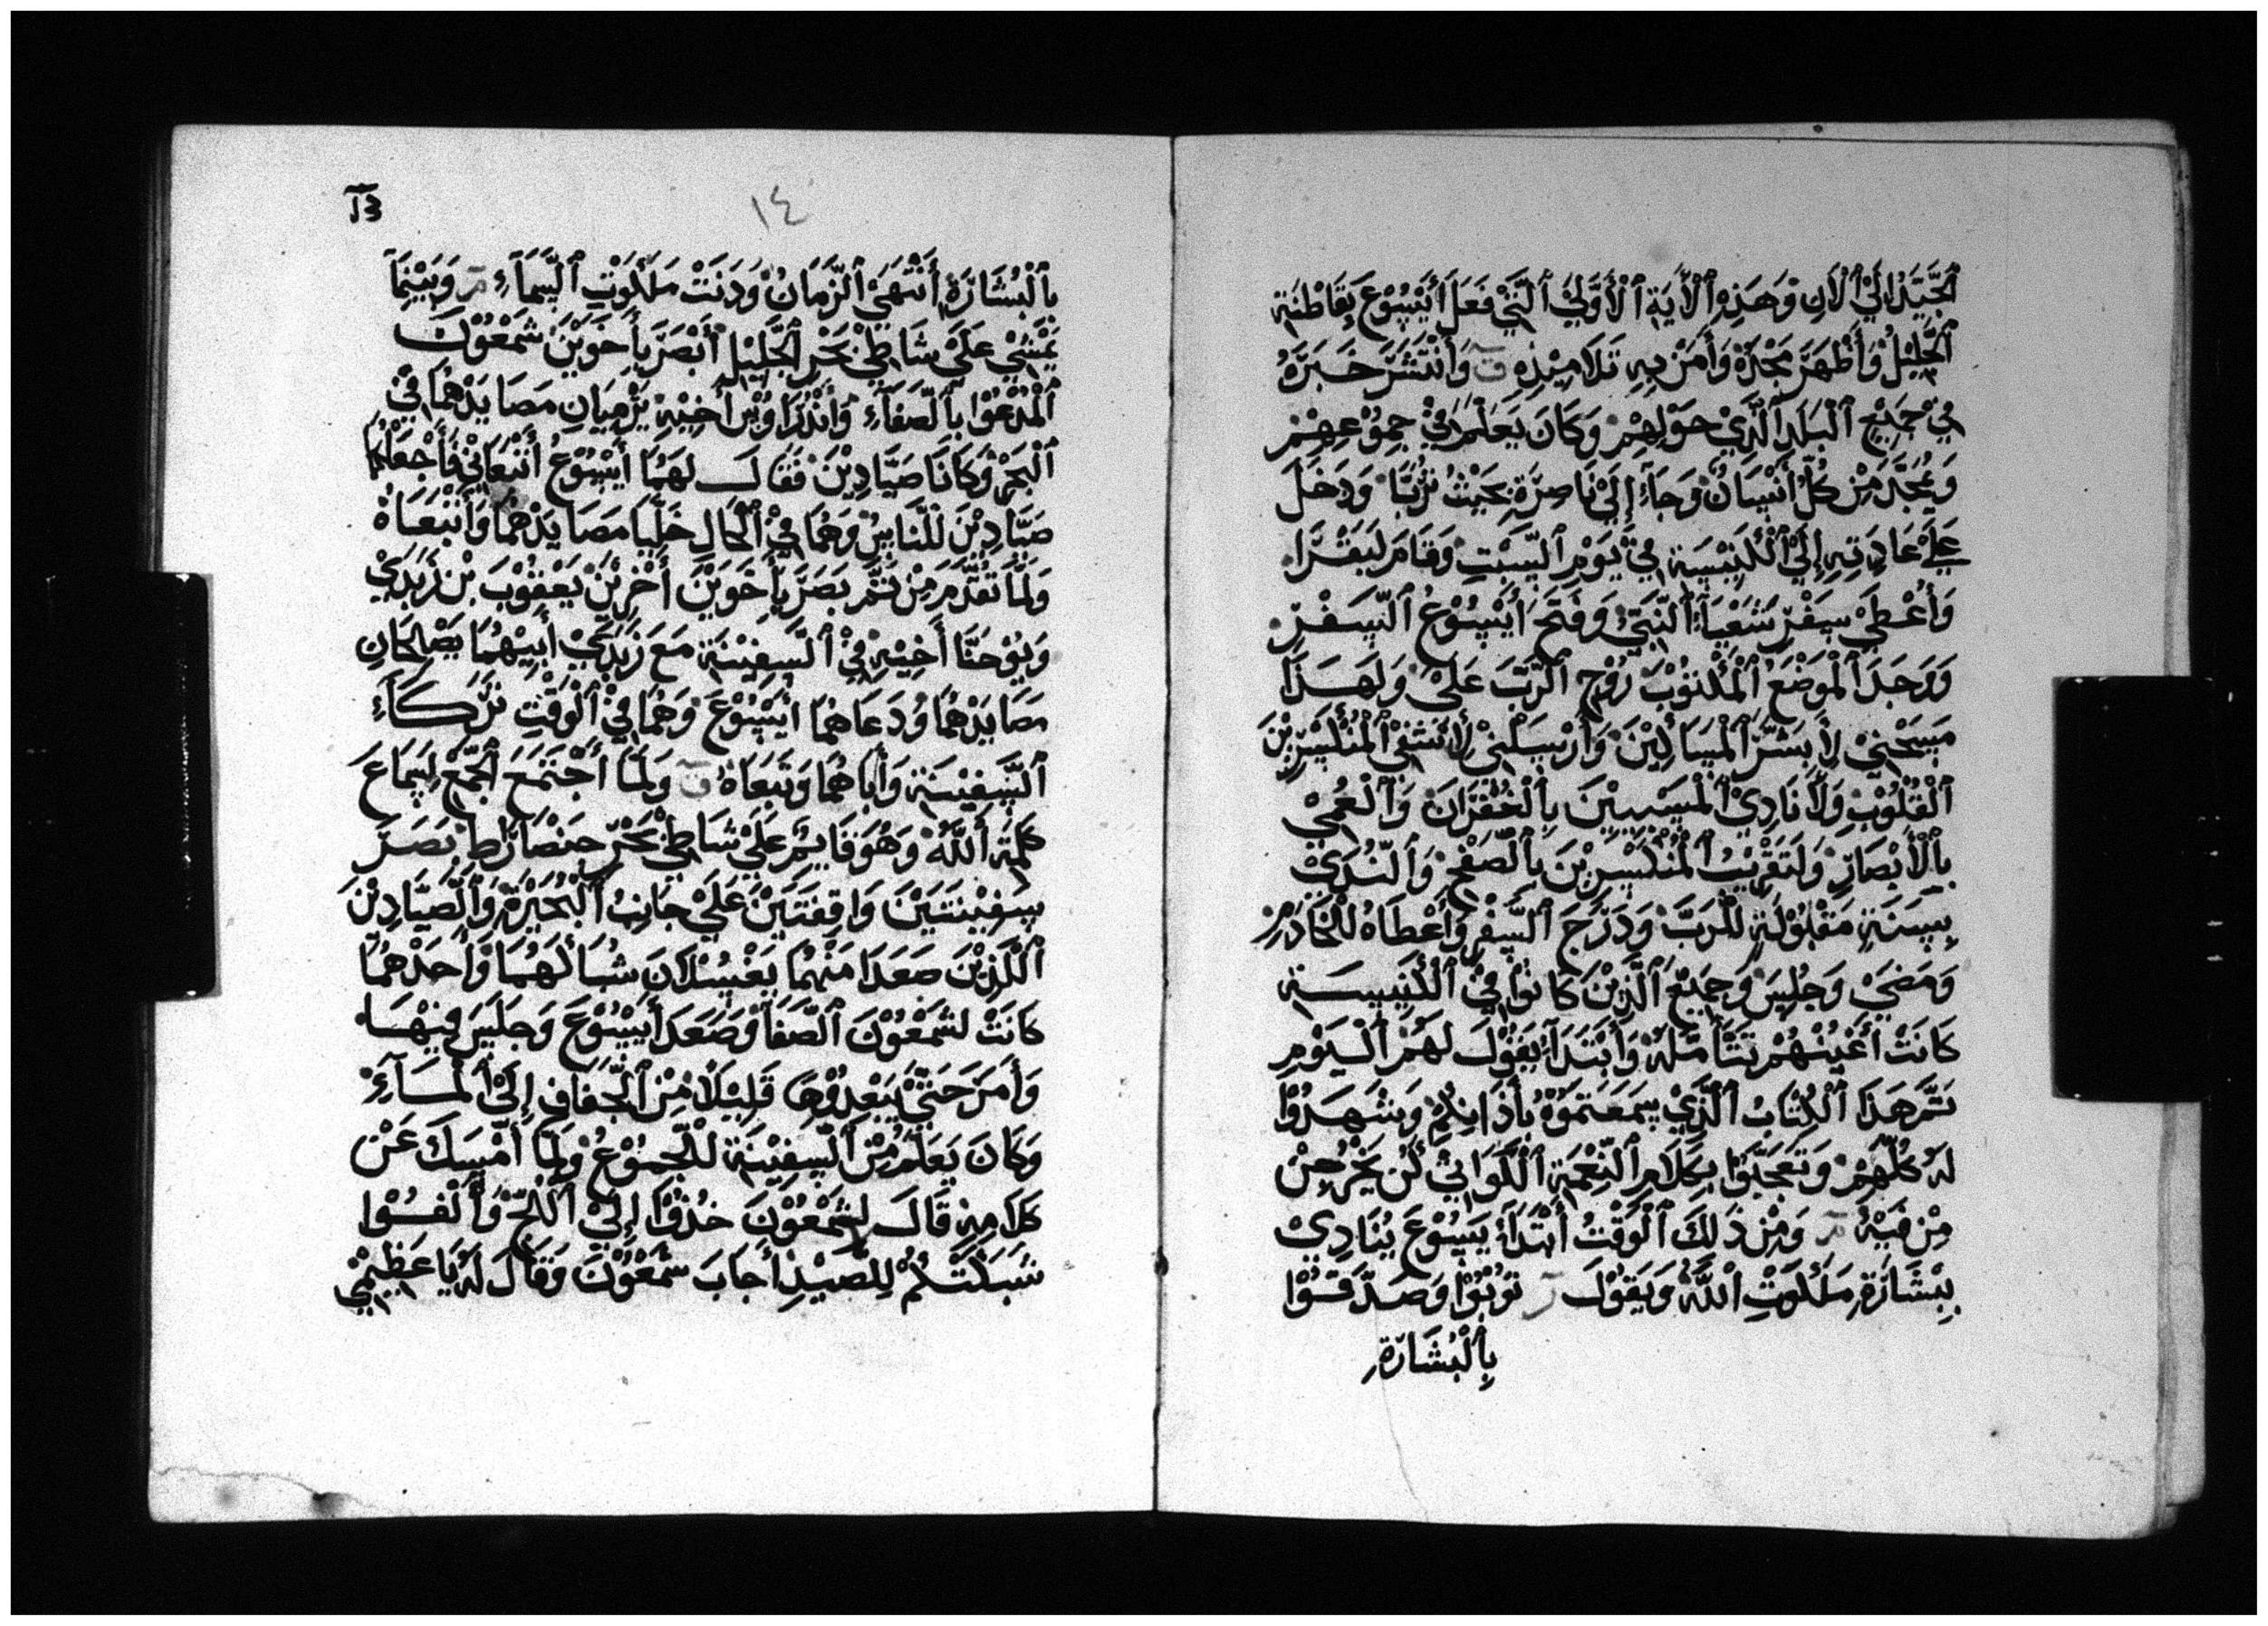 ٱلْجَيِّدَ إِلَيْ ٱلْأَنِ وَهَذِهِ ٱلْأَيَةِ ٱلْأَوَّلَيْ ٱلَّتِيْ فَعَلَ أَيْسُوْعَ بِقَاطْنَةِ
ٱلْجَلِيْلُ وَأَظْهَرَ مَجْدَهُ وَأَمَنَ بِهِ تَلَامِيْذِهِ ق وَأَنْتَشَرَ خَبَرَهُ
فِيْ جَمِيْعِ ٱلْبَلَدِ ٱلَّذِيْ حَوْلِهِمْ وَكَانَ يَعَلِّمُ فِيْ جُمُوْعِهِمْ
وَيُمَجَّدَ مِنْ كُلِّ أَنْسَانْ وَجَاءَ إِلَيْ نَاصِرَةِ بِحَيْثُ تْرُبَّا وَدَخَلَ
عَلَيْ عَادَتِهِ إِلَيْ ٱلْكَنِيْسَةِ فِيْ يَوْمِ ٱلسَّبْتِ وَقَامَ لِيَقْرَا
وَأُعْطِيَ سِفْرِ شَعْيَآءِ ٱلنَّبِيْ وَفَتَحَ أَيْسُوْعُ ٱلسِّفْرِ
وَوَجَدَ ٱلْمَوْضَعُ ٱلْمَكْتُوْبَ رُوْحِ ٱلرَّبِّ عَلَيْ وَلِهَذَا
مَسَحْنِيْ لِأَبَشِّرَ ٱلْمَسَاكِيْنَ وَأَرْسَلَنِيْ لِأَشْفِيْ ٱلْمُنْكَسِرِيْنَ
ٱلْقُلُوْبِ وَلَأُنَادِيْ ٱلْمَسْبِيِيْنَ بِٱلْغُفْرَانِ وَٱلْعُمْيِ
بِٱلْأَبْصَارِ وَلِتَقْرِيْبُ ٱلْمُنْكَسِرِيْنَ بِٱلصَّفْحِ وَٱلنُّدَيْ
بِسَنَةٍ مَقْبُوْلَةٍ لِلْرَبِّ وَدَرَّجَ ٱلسِّفْرِ وَأَعْطَاهُ لِلْخَادِمِ
وَمَضَيْ وَجَلِسَ وَجَمِيْعِ ٱلَّذِيْنَ كَانُوْا فِيْ ٱلْكَنِيْسَةِ
كَانَتْ أَعْيُنُهُمْ تَتَأَمَّلُهُ وَأَبْتَدَأَ يَقُوْلَ لَهُمْ ٱلْيَوْمِ
تَمَّ هَذَا ٱلْكِتَابُ ٱلَّذِيْ سَمَعْتَمُوْهُ بِأَذَانِكُمْ وَشَهَدُوْا
لَهُ كُلِّهِمْ وَتَعَجَّبُوْا بِكَلَامِ ٱلنِّعْمَةِ ٱللَّوَاتِيْ كُنَّ يَخْرُجِنْ
مِنْ فِيْهِ مر وَمِنْ ذَلِكَ ٱلْوَقْتُ أَبْتَدَأَ يَسُوْعَ يُنَادِيْ
بِبْشَارَةِ مَلَكُوْتِ ٱللَّهُ وَيَقُوْلَ ر تُوْبُوْا وَصَدِّقُوْا
بِٱلْبُشَارَةِ
١٤
بِٱلْبُشَارَةِ أَنْتَهَيْ ٱلزَّمَانُ وَدَنَتْ مَلَكُوْتِ ٱلسَّمَآءِ مر وَبَيْنِمَا
يَمْشِيْ عَلَيْ شَاطِئْ بَحْرِ ٱلْجَلِيْلِ أَبْصَرَ بِأَخَوَيْنِ شَمْعُوْنَ
ٱلْمَدْعُوْا بِٱلصَّفَآءِ وَأَنْدْرَاوُسْ أَخِيْهِ يَرْمِيَانِ مَصَايَدْهُمَا فِيْ
ٱلْبَحْرِ وَكَانَا صَيَّادِيْنَ فَقَالَ لَهُمَا أَيْسُوْعُ أَتْبَعَانِيْ فَأَجْعَلْكُمَا
صَيَّادِيْنَ لِلْنَّاسِ وَهُمَا فِيْ ٱلْحَالِ خَلَّيَا مَصَايَدْهُمَا وَأَتْبَعَاهُ
وَلَمَّا تَقَدَّمَ مِنْ ثَمَّ بَصَرَ بِأَخَوَيْنَ أَخْرِيْنَ يَعْقُوْبَ بْنِ زَبَدِيْ
وَيُوْحَنَّا أَخِيْهِ فِيْ ٱلسَّفِيْنَةِ مَعَ زَبَدِيْ أَبِيْهُمَا يَصْلِحَانِ
مَصَايَدْهُمَا وَدَعَاهُمَا أَيْسُوْعَ وَهُمَا فِيْ ٱلْوَقْتِ تَرَكَآءِ
ٱلسَّفِيْنَةِ وَأَبَاهُمَا وَتَبَعَاهُ ق وَلَمَّا أَجْتَمَعَ ٱلْجَمْعُ لِسِمَاعَ
كَلِمَةِ ٱللَّهْ وَهُوَ قَايِمٌ عَلَيْ شَاطِئْ بَحْرِ جَنْصَارَطْ بَصَرَ
سَفِيْنَتَيْنَ وَاقِفَتَيْنَ عَلَيْ جَانِبُ ٱلْبُحَيْرَةِ وَٱلصَّيَّادِيْنَ
ٱللَّذِيْنَ صَعَدَا مِنْهُمَا يَغْسُلَانَ شِبَاكَهُمَا وَأَحَدْهُمَا
كَانَتْ لِشَمْعُوْنَ ٱلصَّفَا وَصَعَدَ أَيْسُوْعَ وَجَلَسَ فِيْهَا
وَأَمَرَ حَتَّيْ يَبْعَدُوْهَا قَلِيْلًا مِنْ ٱلْجَفَافِ إِلَيْ ٱلْمَآءِ
وَكَانَ يَعَلِّمُ مِنْ ٱلسَّفِيْنَةِ لِلْجُمُوْعُ وَلَمَّا أَمْسَكَ عَنْ
كَلَامِهِ قَالَ لِشَمْعُوْنَ خُذُوْا إِلَيْ ٱللُّجِّ وَأَلْقُوْا
شَبَكَتَكُمْ لِلْصَّيْدِ أَجَابَ شَمْعُوْنَ وَقَالَ لَهُ يَا عَظِيْمِيْ